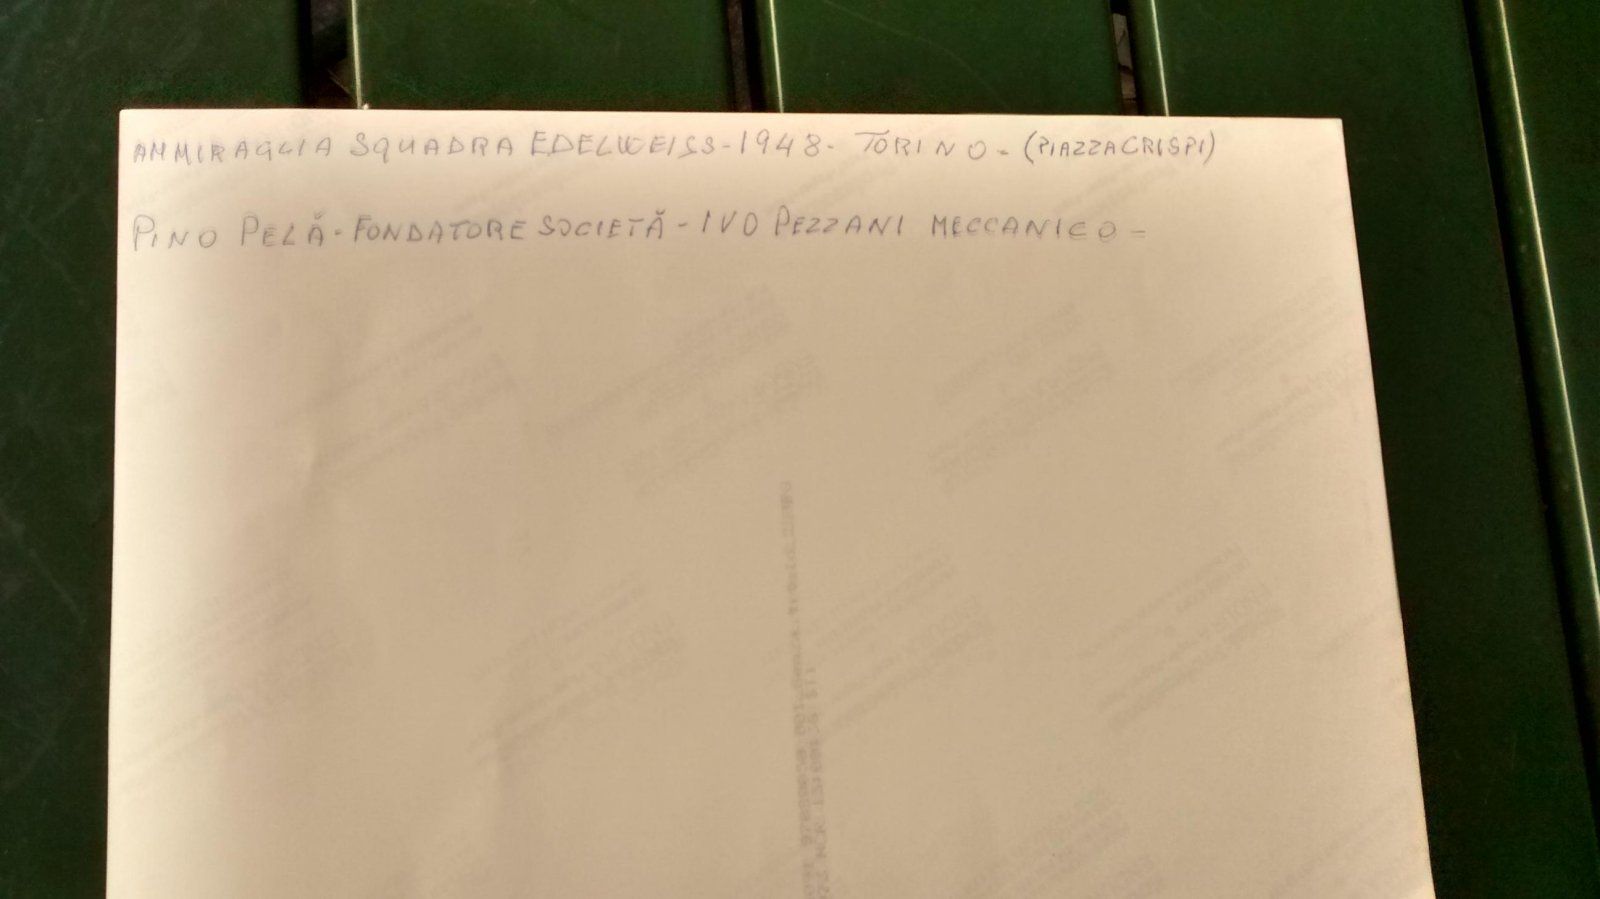 AMMIRAGLIA SQUADRA EDELWEISS - 1948 - TORINO - (PIAZZA CRISPI)
PINO PELÃ - FONDATORE SOCIETÃ - IVO PEZZANI MECCANICO =